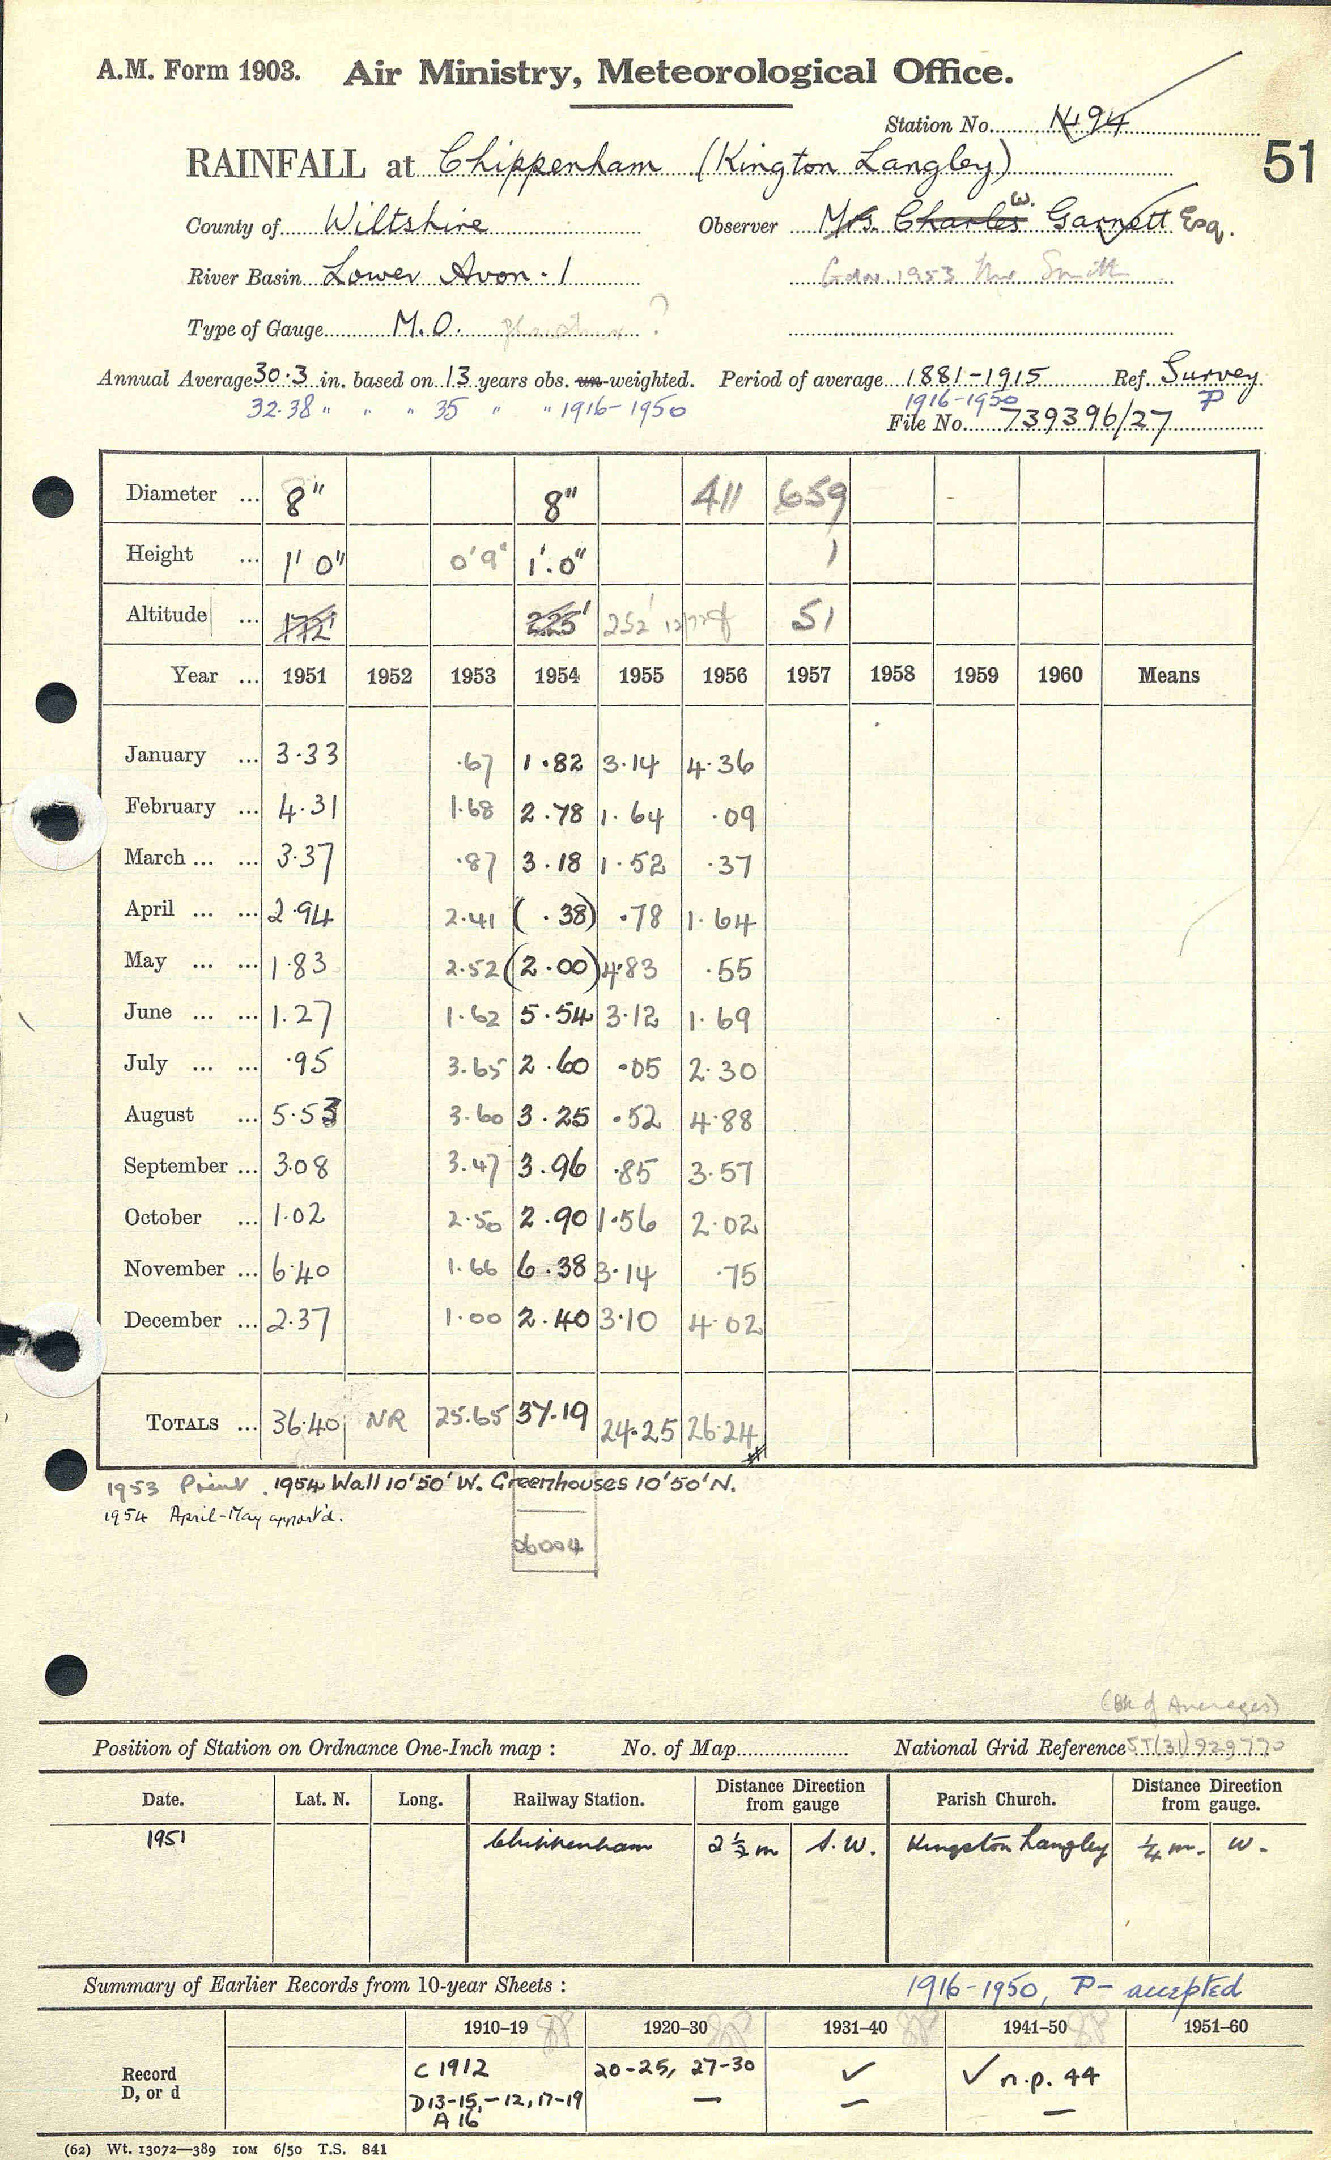 A.M. Form 1903. Air Ministry, Meteorological Office.
Station No. 94
51
RAINFALL at Chippenham (Kington Langley)
County of Wiltshire Observer Mrs. Charles W. Garnett Esq.
River Basin Lower Avon.1 1953 Mr Smith
Type of Gauge M.O. ?
Annual Average 30.3 in. based on 13 years obs. un-weighted. Period of average 1881-1915 Ref. Survey
32.38 " " " 35 " " 1916-1950 1916-1950 P
File No. 739396/27
Diameter ... 8" 8" 411 659
Height ... 1' 0" 0'9" 1'.0" 1
Altitude ... 172' 225' 252' 51
Year ... 1951 1952 1953 1954 1955 1956 1957 1958 1959 1960 Means
January ... 3.33 .67 1.82 3.14 4.36
February ... 4.31 1.68 2.78 1.64 .09
March ... ... 3.37 .87 3.18 1.52 .37
April ... ... 2.94 2.41 (.38) .78 1.64
May ... ... 1.83 2.52 (2.00) 4.83 .55
June ... ... 1.27 1.62 5.54 3.12 1.69
July ... ... .95 3.65 2.60 .05 2.30
August ... 5.53 3.60 3.25 .52 4.88
September ... 3.08 3.47 3.96 .85 3.57
October ... 1.02 2.50 2.90 1.56 2.02
November ... 6.40 1.66 6.38 3.14 .75
December ... 2.37 1.00 2.40 3.10 4.02
TOTALS ... 36.40 NR 25.65 37.19 24.25 26.24
1953 Print. 1954 Wall 10'50' W. Greenhouses 10'50' N.
1954 April-May apport'd.
06004
(Bk of Averages)
Position of Station on Ordnance One-Inch map : No. of Map National Grid Reference ST(31)929770
Date. Lat. N. Long. Railway Station. Distance Direction from gauge Parish Church. Distance Direction from gauge.
1951 Chippenham 2 1/2 m S.W. Kingston Langley 1/4 m. W.
Summary of Earlier Records from 10-year Sheets : 1916-1950, P- accepted
1910-19 1920-30 1931-40 1941-50 1951-60
Record C 1912 20-25, 27-30 ✓ ✓ n.p. 44
D, or d D13-15, -12, 17-19 — — —
A 16
(62) Wt. 13072—389 10M 6/50 T.S. 841